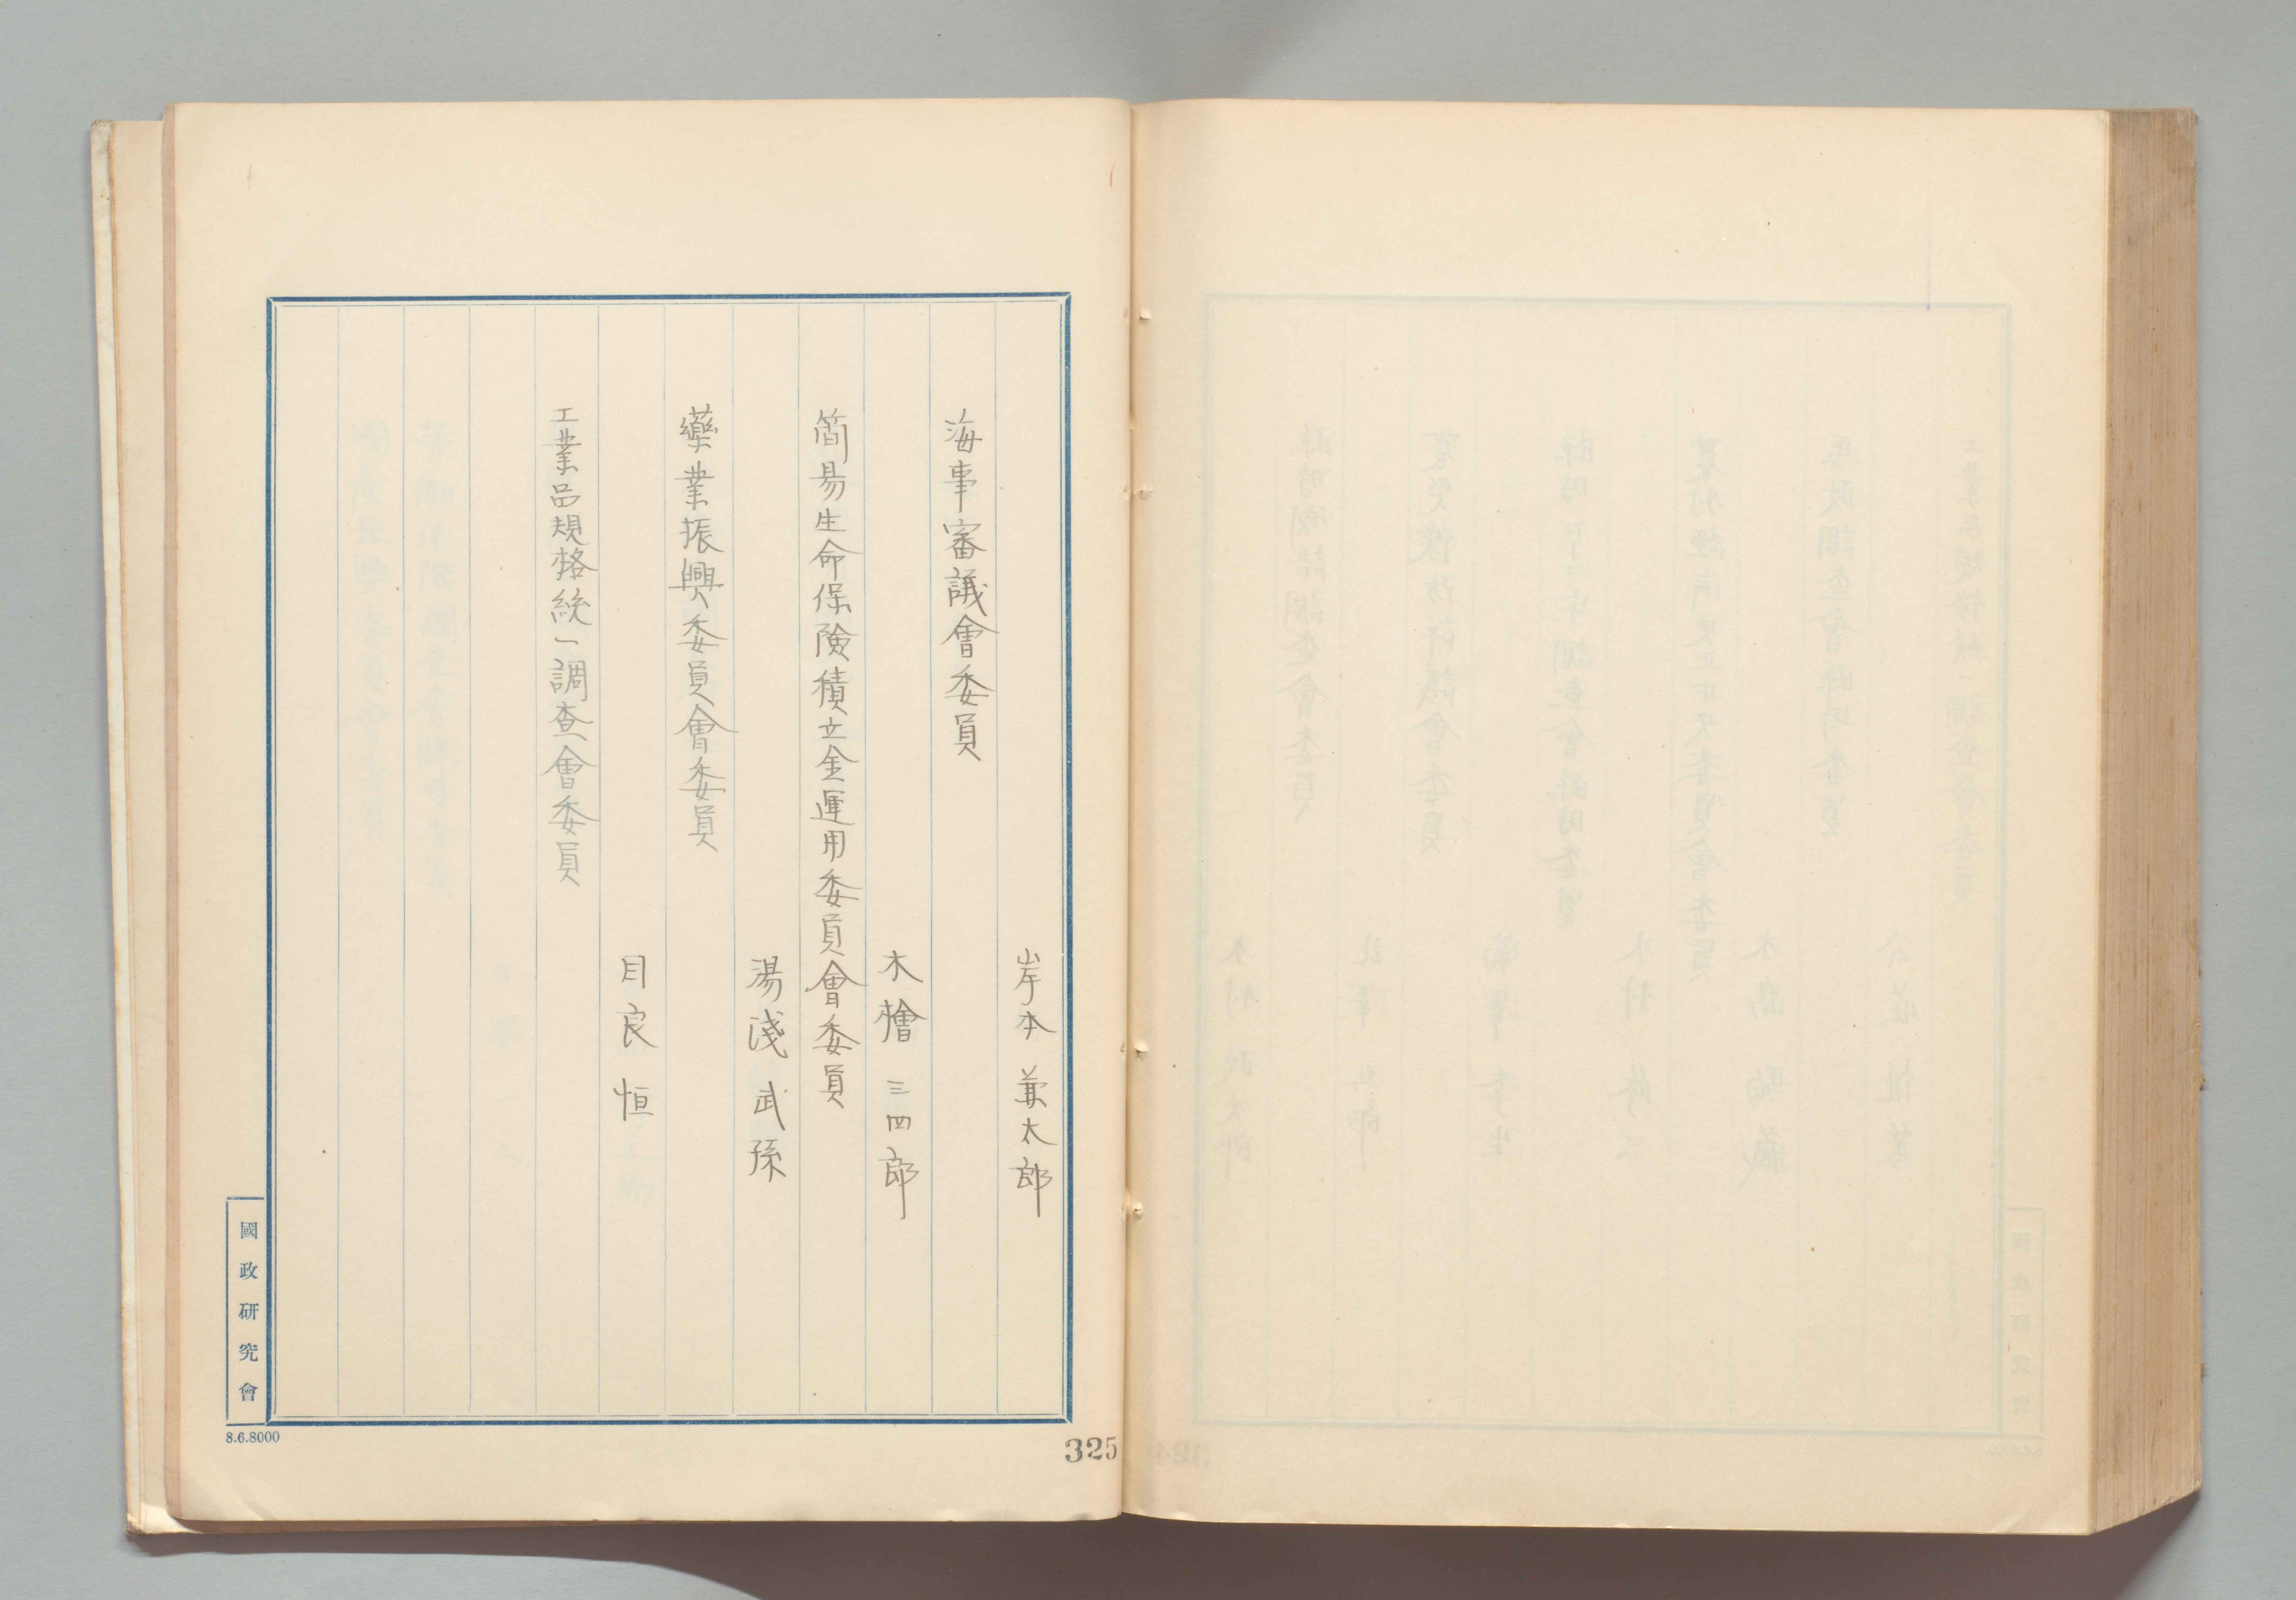 岸本兼太郎
海事審議會委員
木檜三四郎
簡易生命保險積立金運用委員會委員
湯淺武孫
藥業振興委員會委員
目良恒
工業品規格統一調査會委員
國政研究會
8.6.8000
325